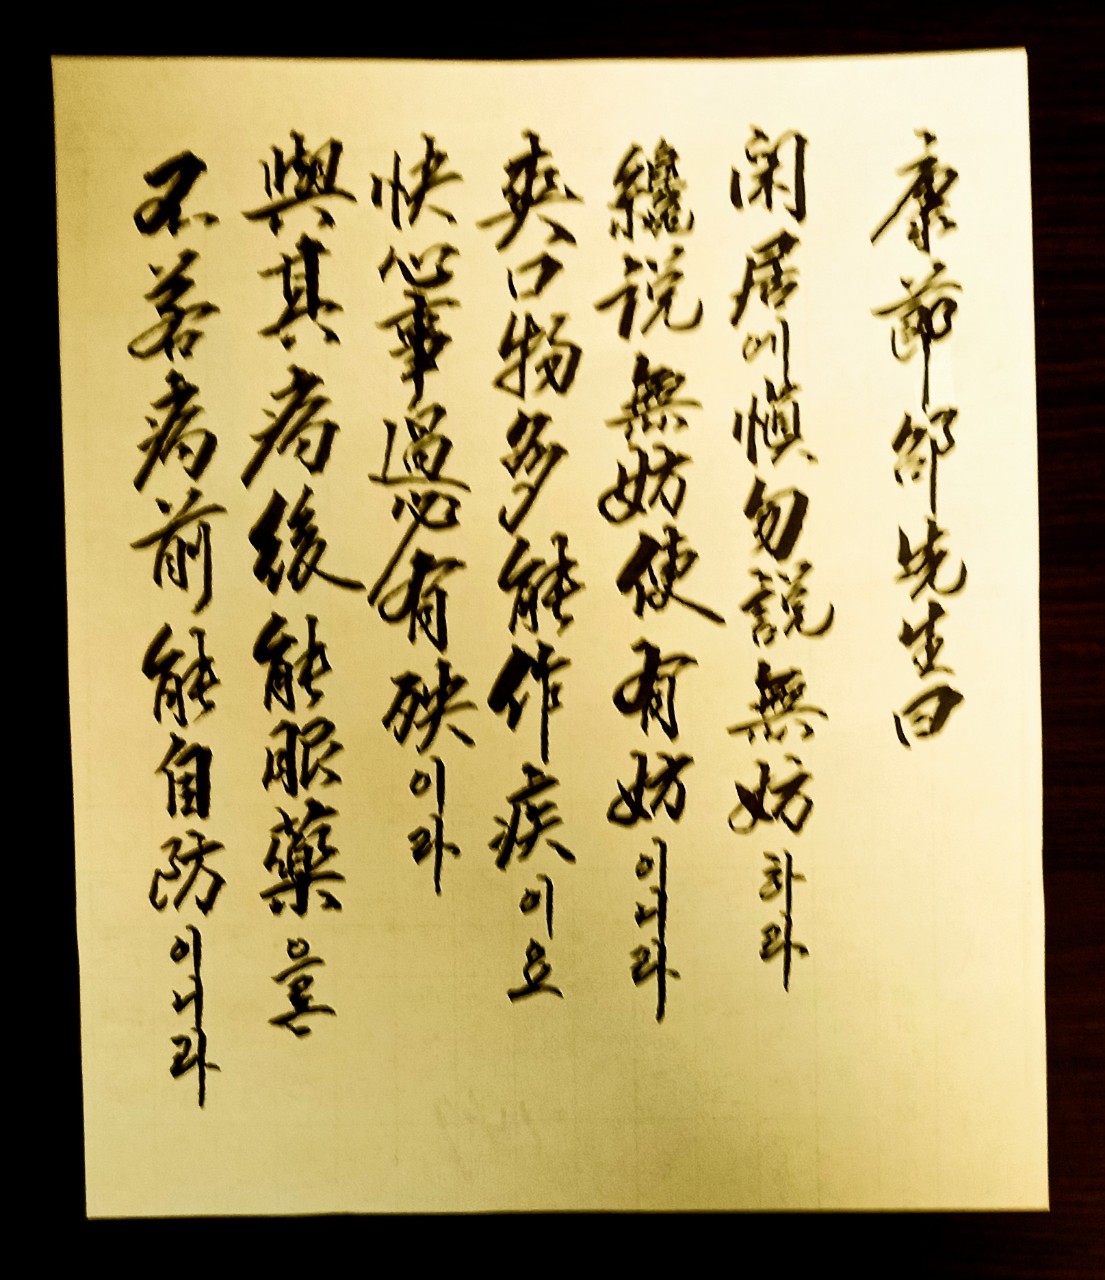 康節邵先生曰
閑居에愼勿說無妨하라
纔說無妨便有妨이니라
爽口物多能作疾이요
快心事過必有殃이라
與其病後能服藥으론
不若病前能自防이니라